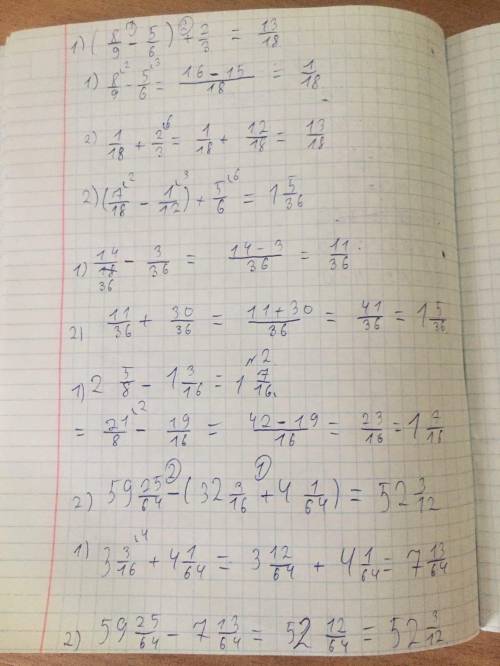 1) (8/9 - 5/6) + 2/3 = 13/18
1) 8/9 - 5/6 = (16-15)/18 = 1/18
2) 1/18 + 2/3 = 1/18 + 12/18 = 13/18
2) (7/18 - 1/12) + 5/6 = 1 5/36
1) 14/36 - 3/36 = (14-3)/36 = 11/36
2) 11/36 + 30/36 = (11+30)/36 = 41/36 = 1 5/36
№2
1) 2 5/8 - 1 3/16 = 1 7/16
= 21/8 - 19/16 = (42-19)/16 = 23/16 = 1 7/16
2) 59 25/64 - (32 3/16 + 4 1/64) = 52 3/12
1) 3 3/16 + 4 1/64 = 3 12/64 + 4 1/64 = 7 13/64
2) 59 25/64 - 7 13/64 = 52 12/64 = 52 3/12